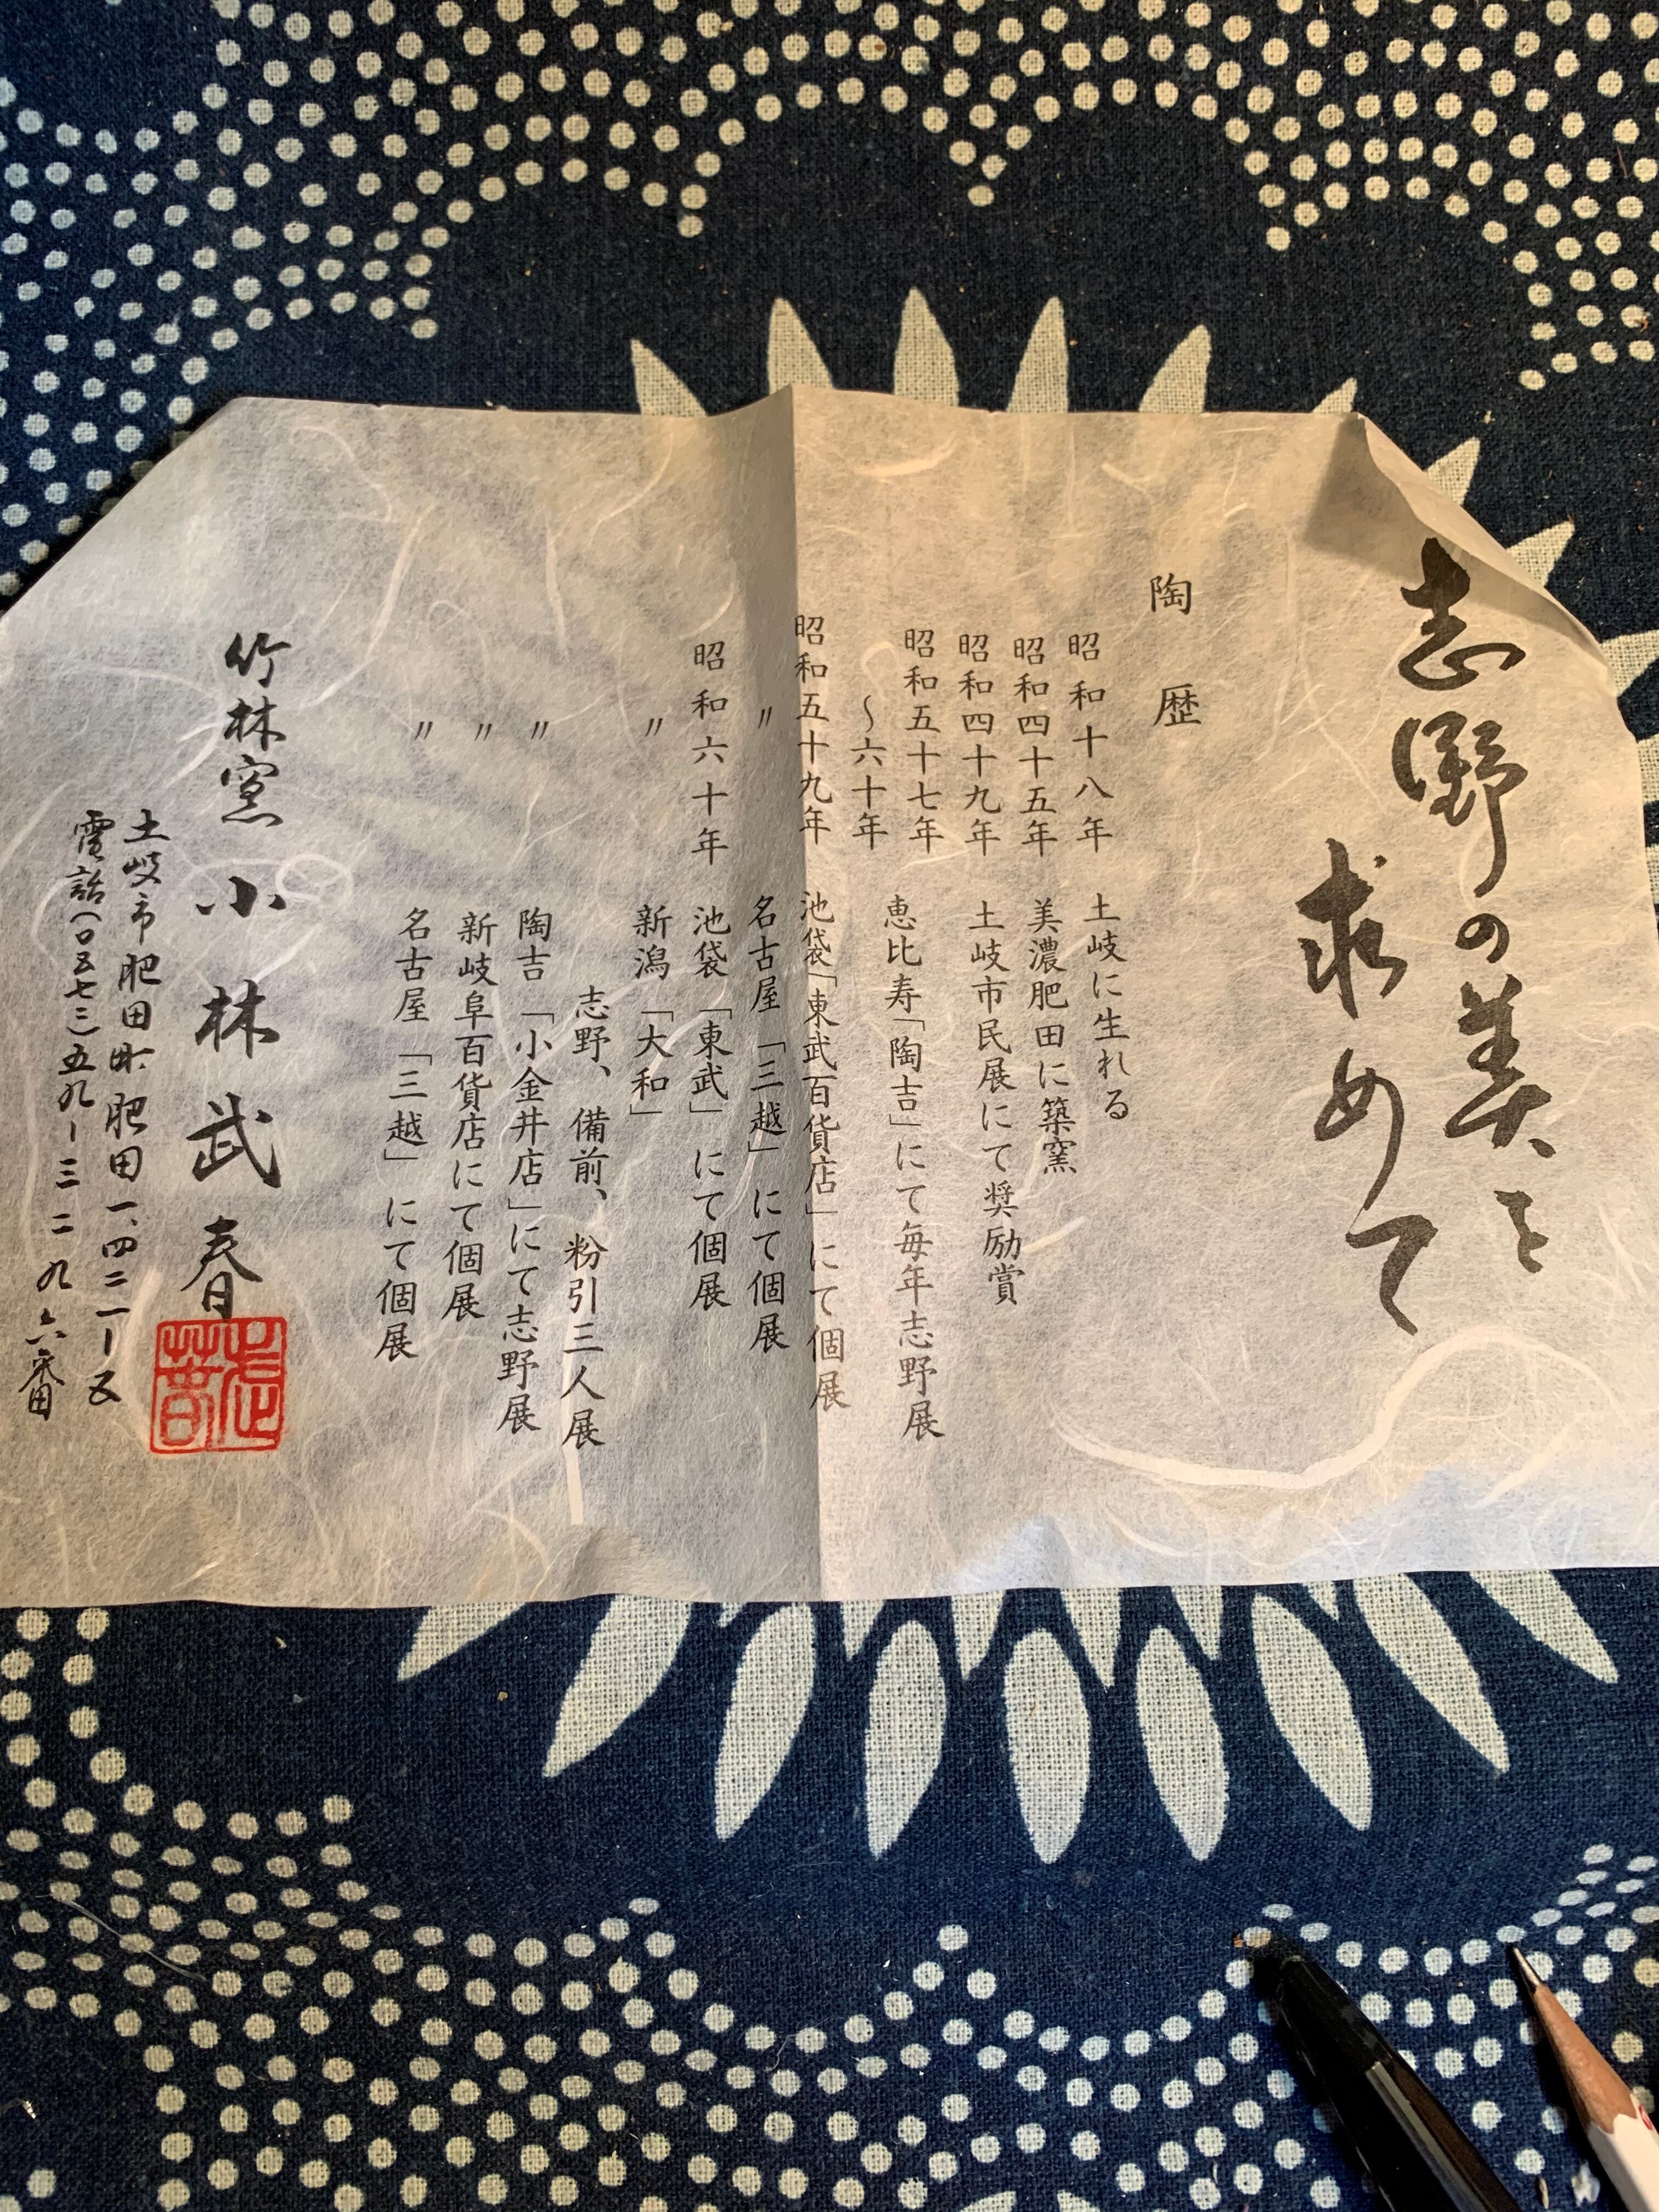 志野の美を
求めて
陶歴
昭和十八年 土岐に生れる
昭和四十五年 美濃肥田に築窯
昭和四十九年 土岐市民展にて奨励賞
昭和五十七年
～六十年 恵比寿「陶吉」にて毎年志野展
昭和五十九年 池袋「東武百貨店」にて個展
〃 名古屋「三越」にて個展
昭和六十年 池袋「東武」にて個展
〃 新潟「大和」
志野、備前、粉引三人展
〃 陶吉「小金井店」にて志野展
〃 新岐阜百貨店にて個展
〃 名古屋「三越」にて個展
竹林窯 小林武春
土岐市肥田町肥田一、四二一ー五
電話(〇五七二)五九ー三二九六番